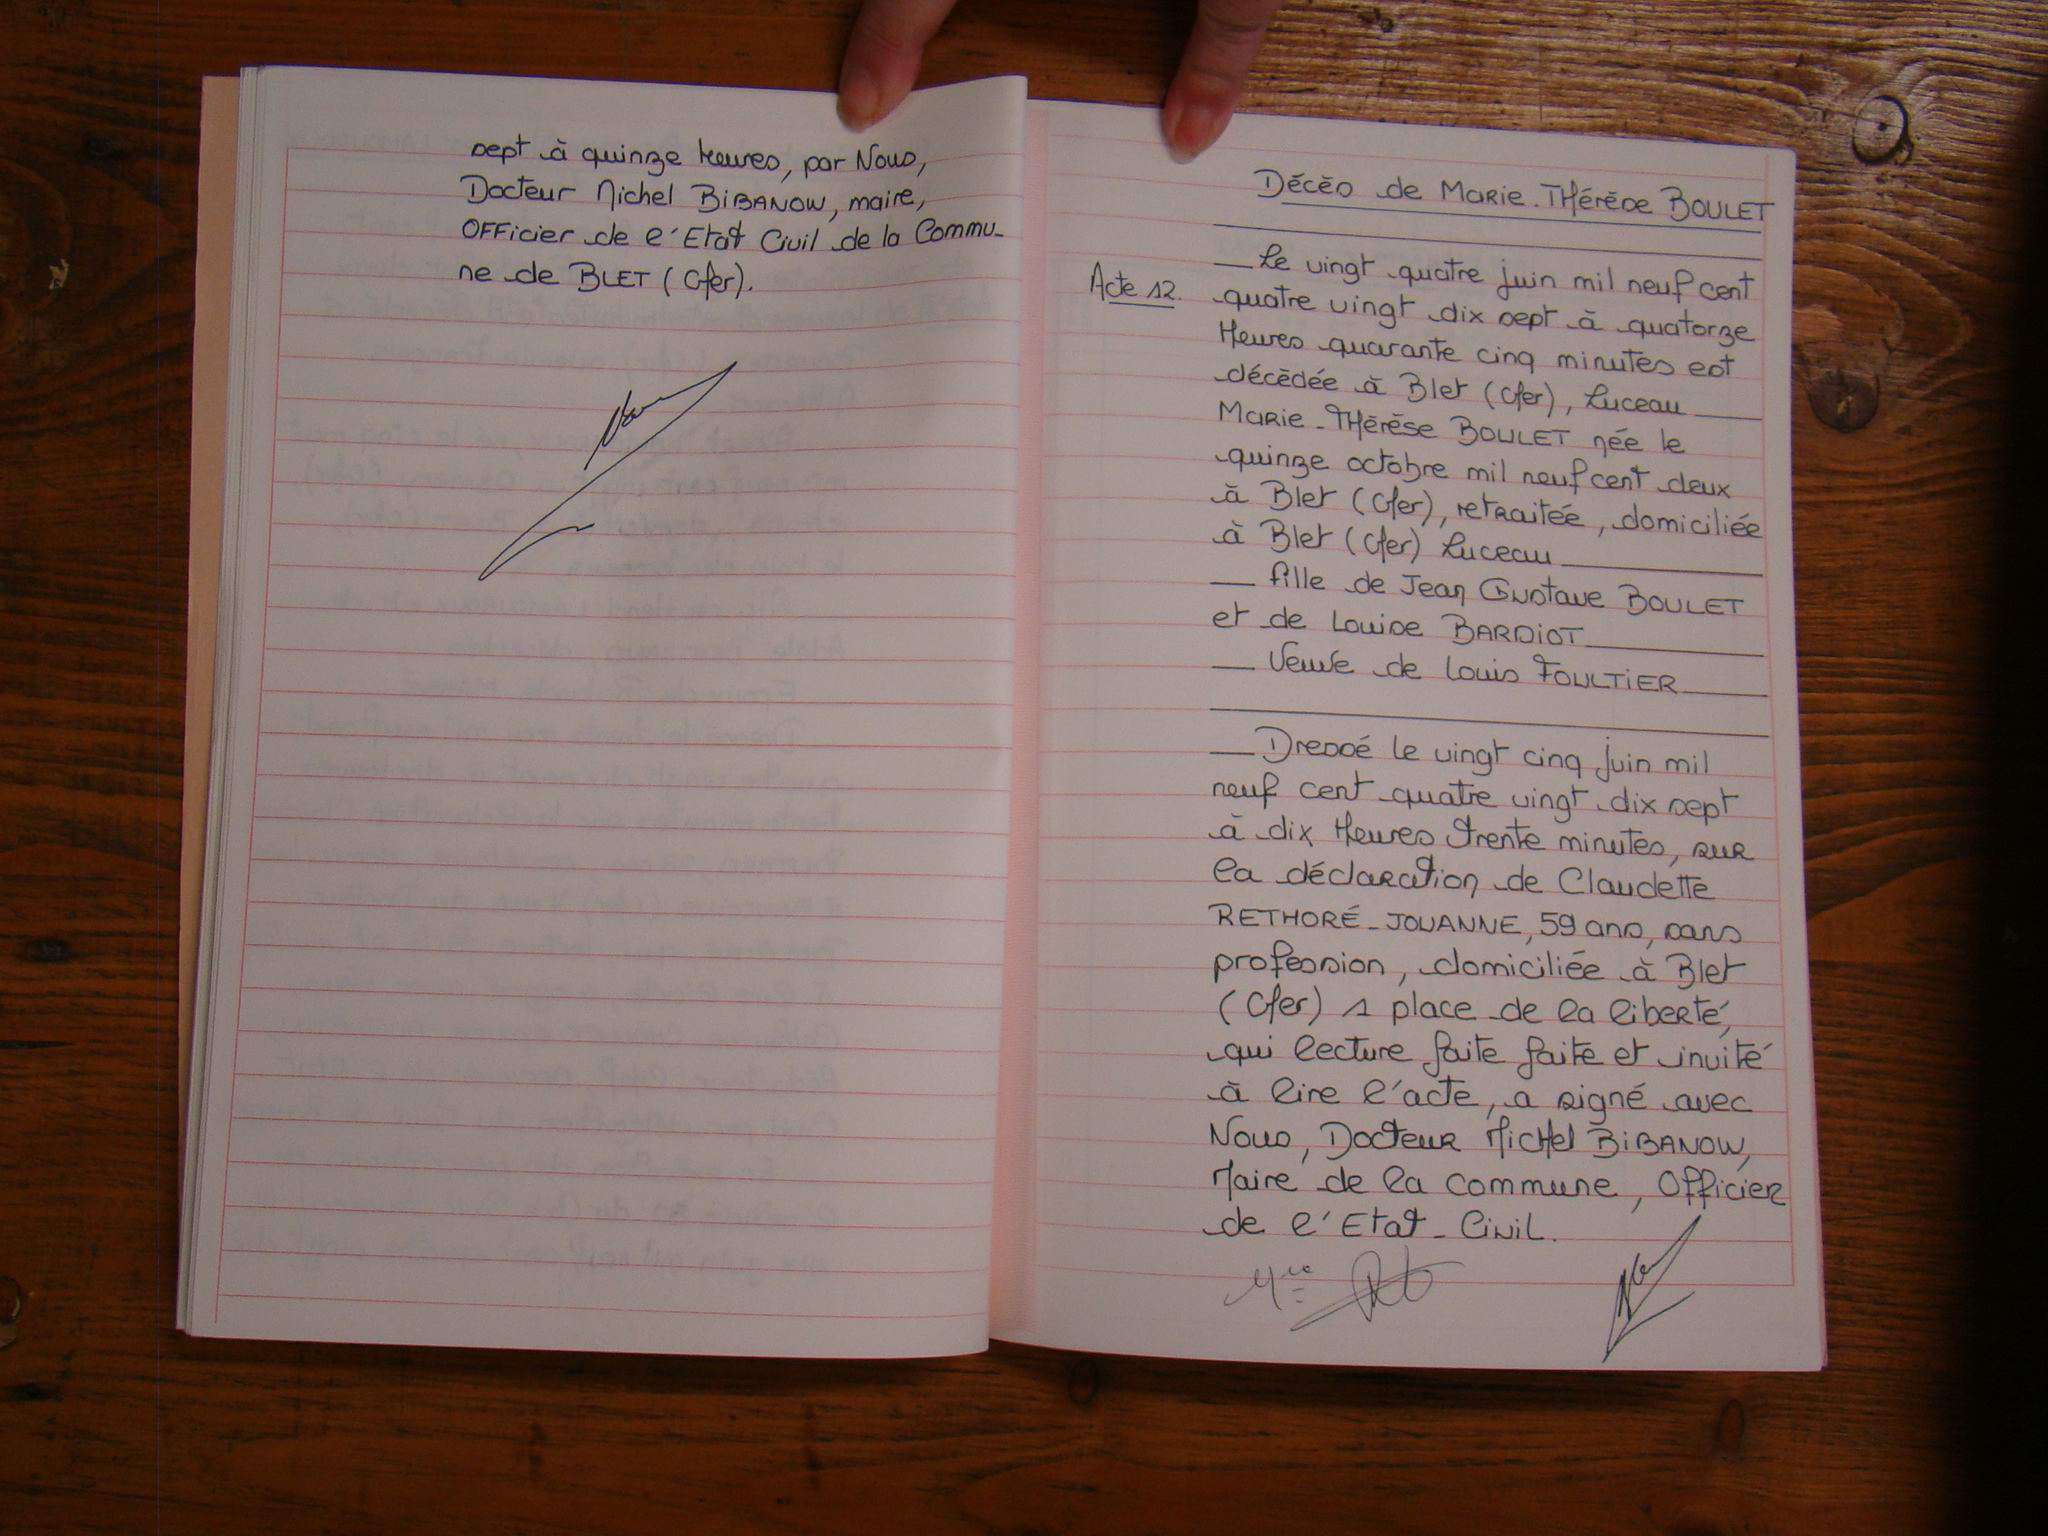 sept à quinze heures, par Nous,
Docteur Michel BIBANOW, maire,
Officier de l'Etat Civil de la Commu-
ne de BLET (Cher).
Décès de Marie-Thérèse BOULET
Acte 12.
Le vingt quatre juin mil neuf cent
quatre vingt dix sept à quatorze
Heures quarante cinq minutes est
décédée à Blet (Cher), Luceau
Marie-Thérèse BOULET née le
quinze octobre mil neuf cent deux
à Blet (Cher), retraitée, domiciliée
à Blet (Cher) Luceau
fille de Jean Gustave BOULET
et de Louise BARDIOT
Veuve de Louis FOULTIER
Dressé le vingt cinq juin mil
neuf cent quatre vingt dix sept
à dix Heures trente minutes, sur
la déclaration de Claudette
RETHORÉ-JOUANNE, 59 ans, sans
profession, domiciliée à Blet
(Cher) 1 place de la liberté,
qui lecture faite faite et invité
à lire l'acte, a signé avec
Nous, Docteur Michel BIBANOW,
Maire de la commune, Officier
de l'Etat-Civil.